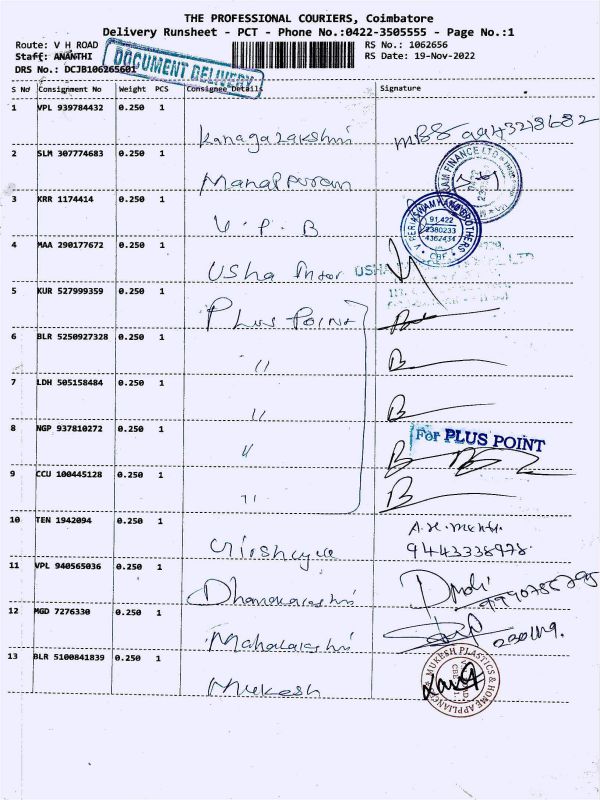 THE PROFESSIONAL COURIERS, Coimbatore
Delivery Runsheet - PCT - Phone No.:0422-3505555 - Page No.:1
Route: V H ROAD
RS No.: 1062656
Staff: ANANTHI
RS Date: 19-Nov-2022
DRS No.: DCJB106265601
DOCUMENT DELIVERY
S No Consignment No Weight PCS Consignee Details Signature
1 VPL 939784432 0.250 1
Kanagalakshmi
2 SLM 307774683 0.250 1
Manappuram
3 KRR 1174414 0.250 1
V. P. B
91.422
2380233
4362434
CBE
4 MAA 290177672 0.250 1
Usha USHA
5 KUR 527999359 0.250 1
Plus Point
6 BLR 5250927328 0.250 1
"
7 LDH 505158484 0.250 1
"
8 NGP 937810272 0.250 1
" For PLUS POINT
9 CCU 100445128 0.250 1
"
10 TEN 1942094 0.250 1
9443338978
11 VPL 940565036 0.250 1
12 MGD 7276330 0.250 1
Mahalakshmi
13 BLR 5100841839 0.250 1
Mukesh MUKESH PLASTICS & HOME APPLIANCES